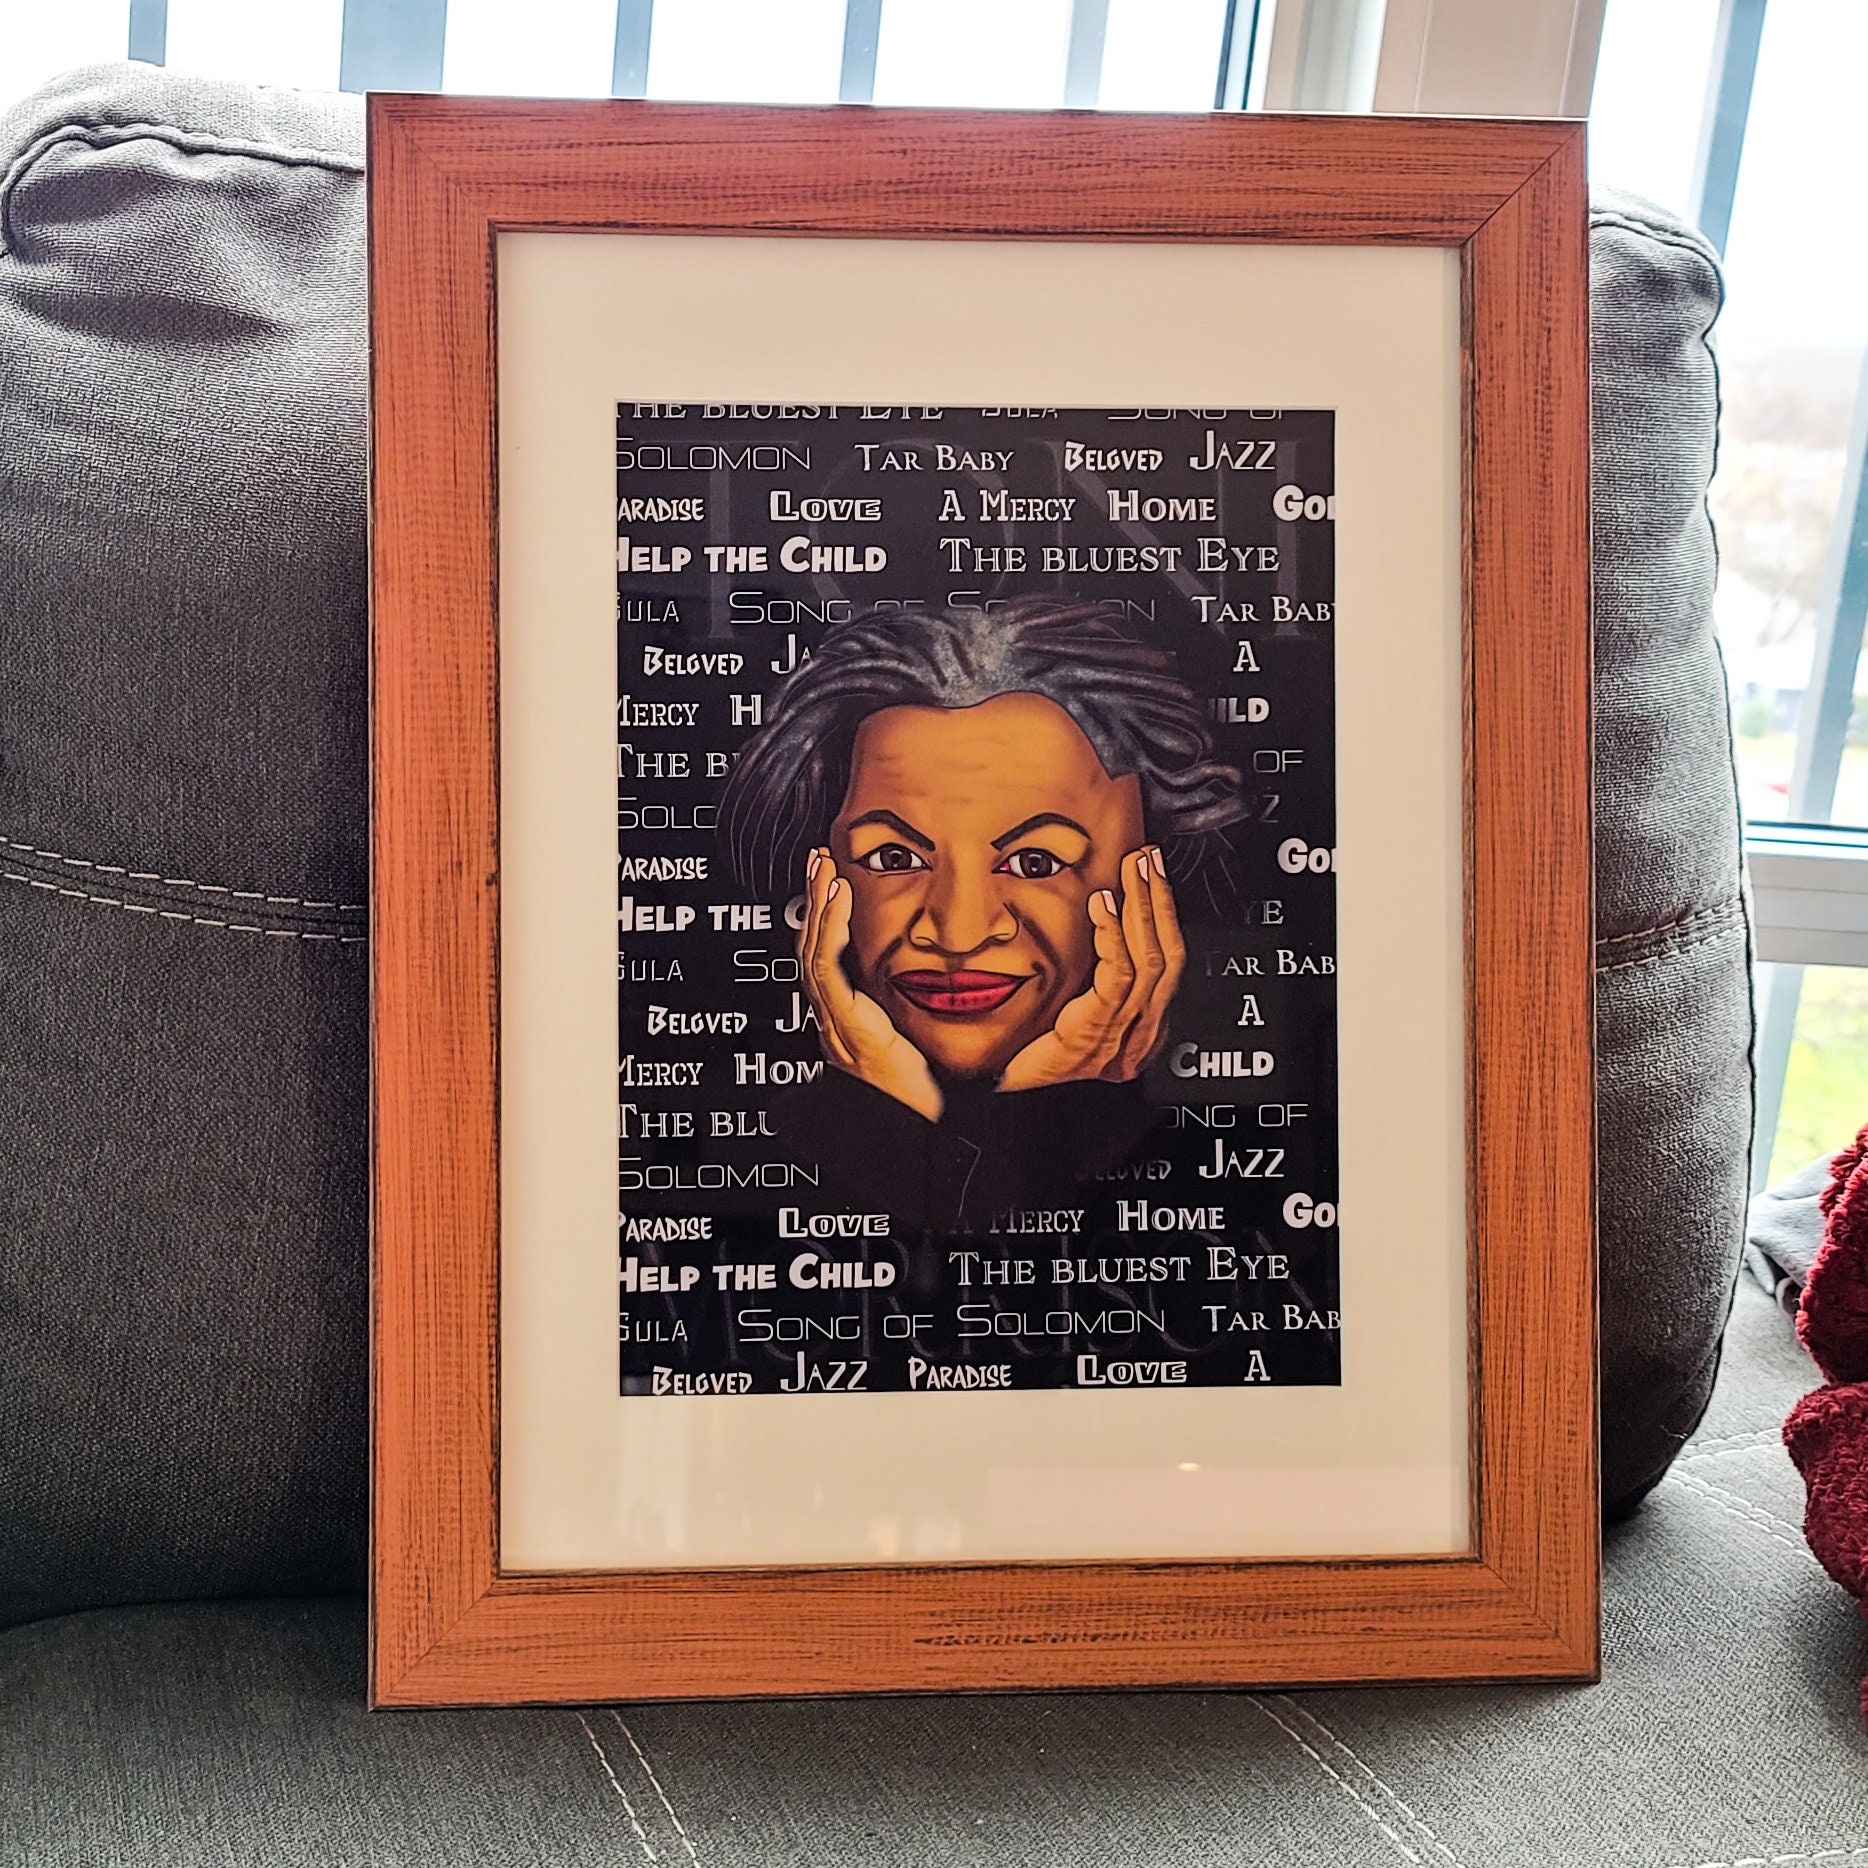 THE BLUEST EYE SULA SONG OF
SOLOMON TAR BABY BELOVED JAZZ
PARADISE LOVE A MERCY HOME GO
HELP THE CHILD THE BLUEST EYE
SULA SONG OF SOLOMON TAR BAB
BELOVED JA A
MERCY H ILD
THE B OF
SOLO Z
PARADISE GO
HELP THE C YE
SULA SO TAR BAB
BELOVED JA A
MERCY HOM CHILD
THE BLU ONG OF
SOLOMON BELOVED JAZZ
PARADISE LOVE A MERCY HOME GO
HELP THE CHILD THE BLUEST EYE
SULA SONG OF SOLOMON TAR BAB
BELOVED JAZZ PARADISE LOVE A
TONI
MORRISON